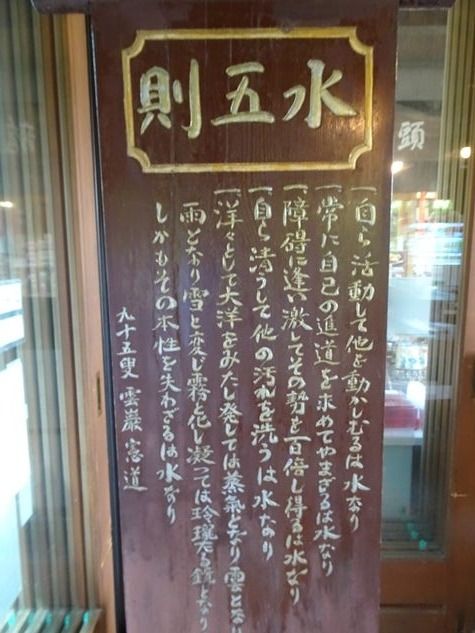 水五則
一自ら活動して他を動かしむるは水なり
一常に自己の進道を求めてやまざるは水なり
一障碍に逢い激してその勢を百倍し得るは水なり
一自ら清うして他の汚れを洗うは水なり
一洋々として大洋をみたし発しては蒸氣となり雲となり
雨となり雪と変じ霧と化し凝っては玲瓏たる鏡となり
しかもその本性を失わざるは水なり
九十五叟 雲巌憲道
頭